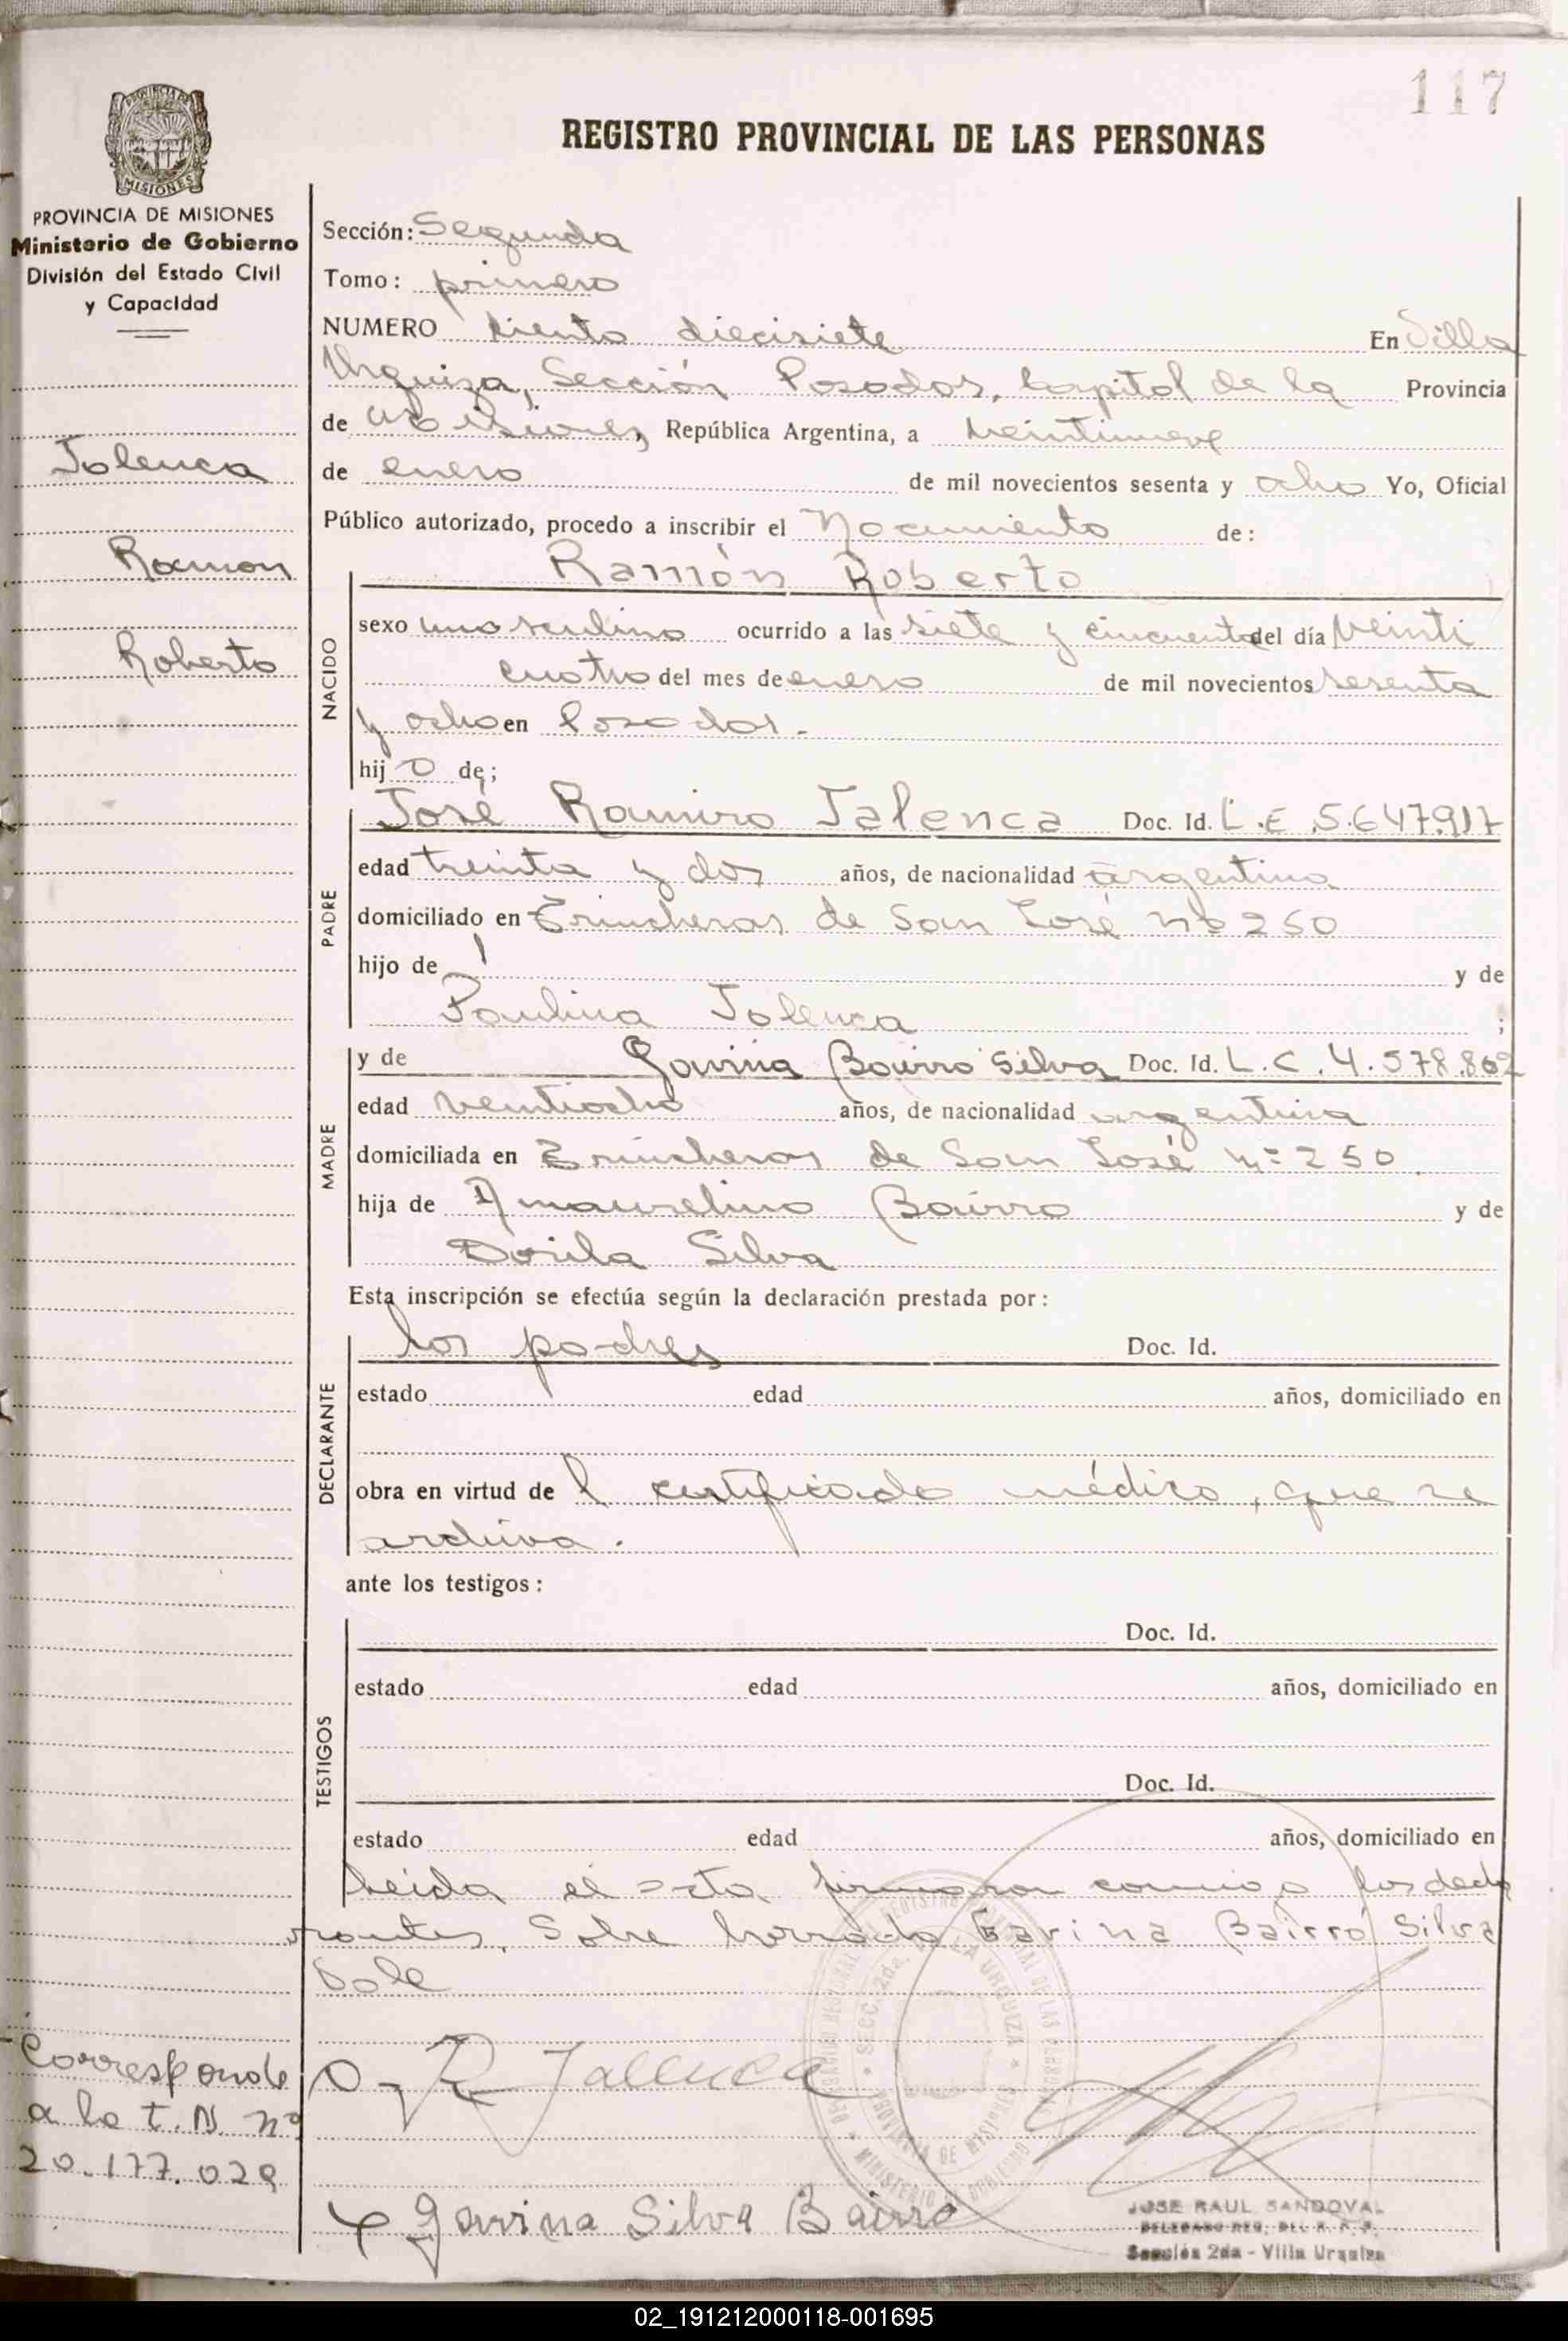 117
REGISTRO PROVINCIAL DE LAS PERSONAS
PROVINCIA DE MISIONES
MISIONES
PROVINCIA DE MISIONES
Ministerio de Gobierno
División del Estado Civil
y Capacidad
Talenca
Ramon
Roberto
Corresponde
a la t. N nº
20.177.029
Sección: Segunda
Tomo: primero
NUMERO Ciento diecisiete En Villa
Urquiza, Sección Posadas, Capital de la Provincia
de Misiones, República Argentina, a Veintinueve
de enero de mil novecientos sesenta y ocho Yo, Oficial
Público autorizado, procedo a inscribir el Nacimiento de:
NACIDO
Ramón Roberto
sexo masculino ocurrido a las siete y cincuenta del día Veinti
cuatro del mes de enero de mil novecientos sesenta
y ocho en Posadas.-
hijo de;
PADRE
José Ramiro Talenca Doc. Id. L.E 5.647.917
edad treinta y dos años, de nacionalidad argentina
domiciliado en Trincheras de San José nº 250
hijo de y de
Paulina Talenca ;
MADRE
y de Gavina Bairro Silva Doc. Id. L.C. 4.578.802
edad Veintiocho años, de nacionalidad argentina
domiciliada en Trincheras de San José nº 250
hija de Amaurelino Bairro y de
Dorila Silva
Esta inscripción se efectúa según la declaración prestada por:
DECLARANTE
los padres Doc. Id.
estado edad años, domiciliado en
obra en virtud del certificado médico, que se
archiva.
ante los testigos:
TESTIGOS
Doc. Id.
estado edad años, domiciliado en
Doc. Id.
estado edad años, domiciliado en
Leida el acta firmaron conmigo los decla
rantes. Sobre borrado Gavina Bairró Silva
Vale
R Tallenca
Gavina Silva Bairro
SECC. 2da. VILLA URQUIZA
PROVINCIA DE MISIONES
MINISTERIO DE GOBIERNO
JOSE RAUL SANDOVAL
DELEGADO REG. DEL R. P. P.
Sección 2da - Villa Urquiza
02_191212000118-001695